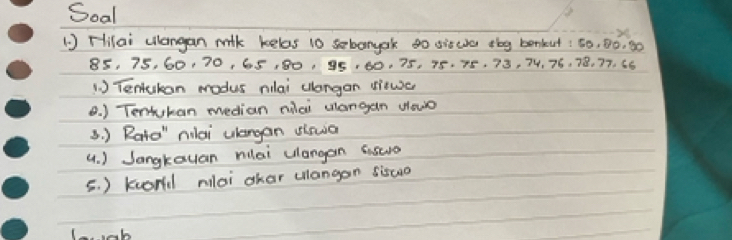 Soal
1.) Nilai ulangan mtk kelas 10 sebanyak 20 siswa sbg berikut : 50, 80, 90
85, 75, 60, 70, 65, 80, 95, 60, 75, 75, 75, 73, 74, 76, 78, 77, 66
1.) Tentukan modus nilai ulangan siswa
2.) Tentukan median nilai ulangan siswa
3.) Rata" nilai ulangan siswa
4.) Jangkauan nilai ulangan siswa
5.) Kuartil nilai akar ulangan siswa
Jawab